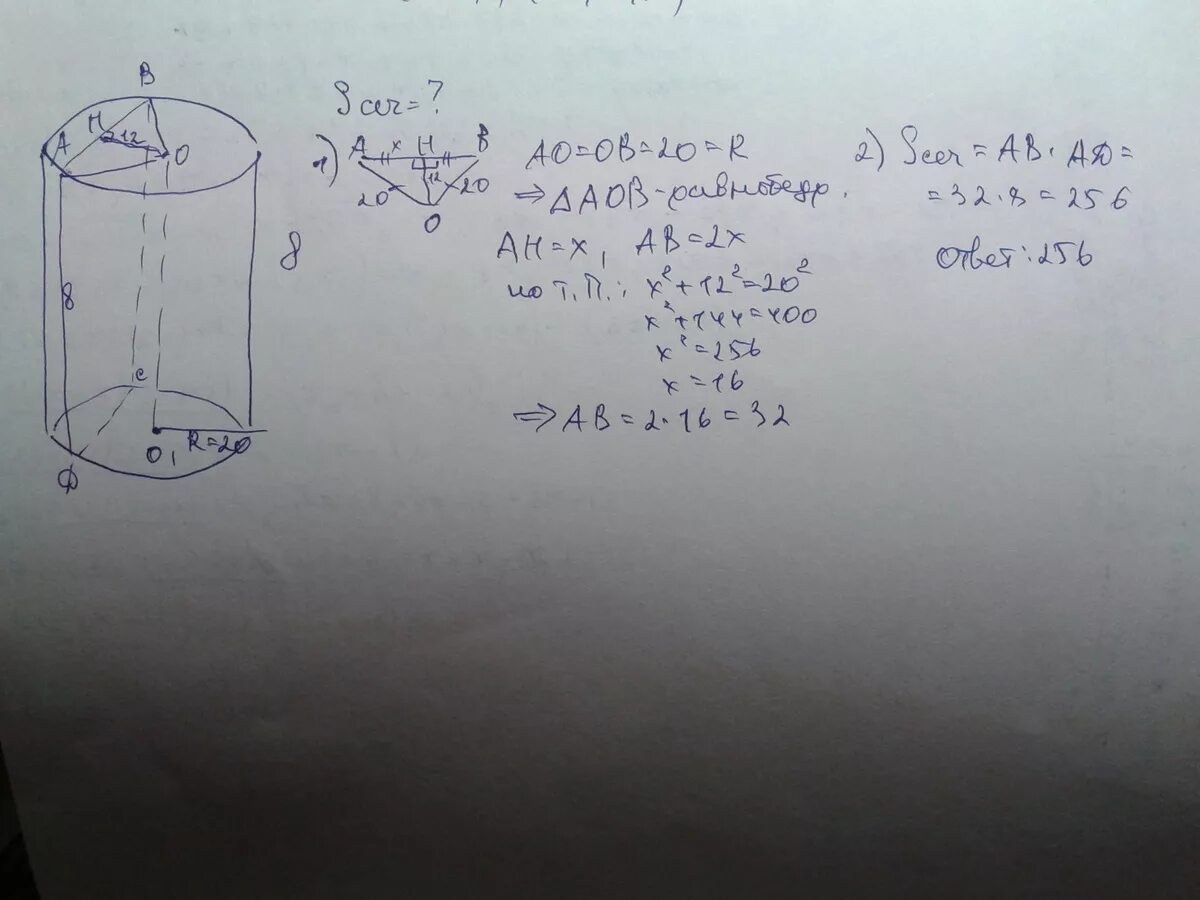 Sсеч = ?
B
H
A
12
O
8
8
C
O₁
R=20
D
1)
A x H B
20 12 20
O
AO=OB=20=R
⇒ △AOB - равнобедр.
AH=x, AB=2x
по т.П.: x²+12²=20²
x²+144=400
x²=256
x=16
⇒ AB=2·16=32
2) Sсеч = AB·AD=
=32·8=256
Ответ: 256